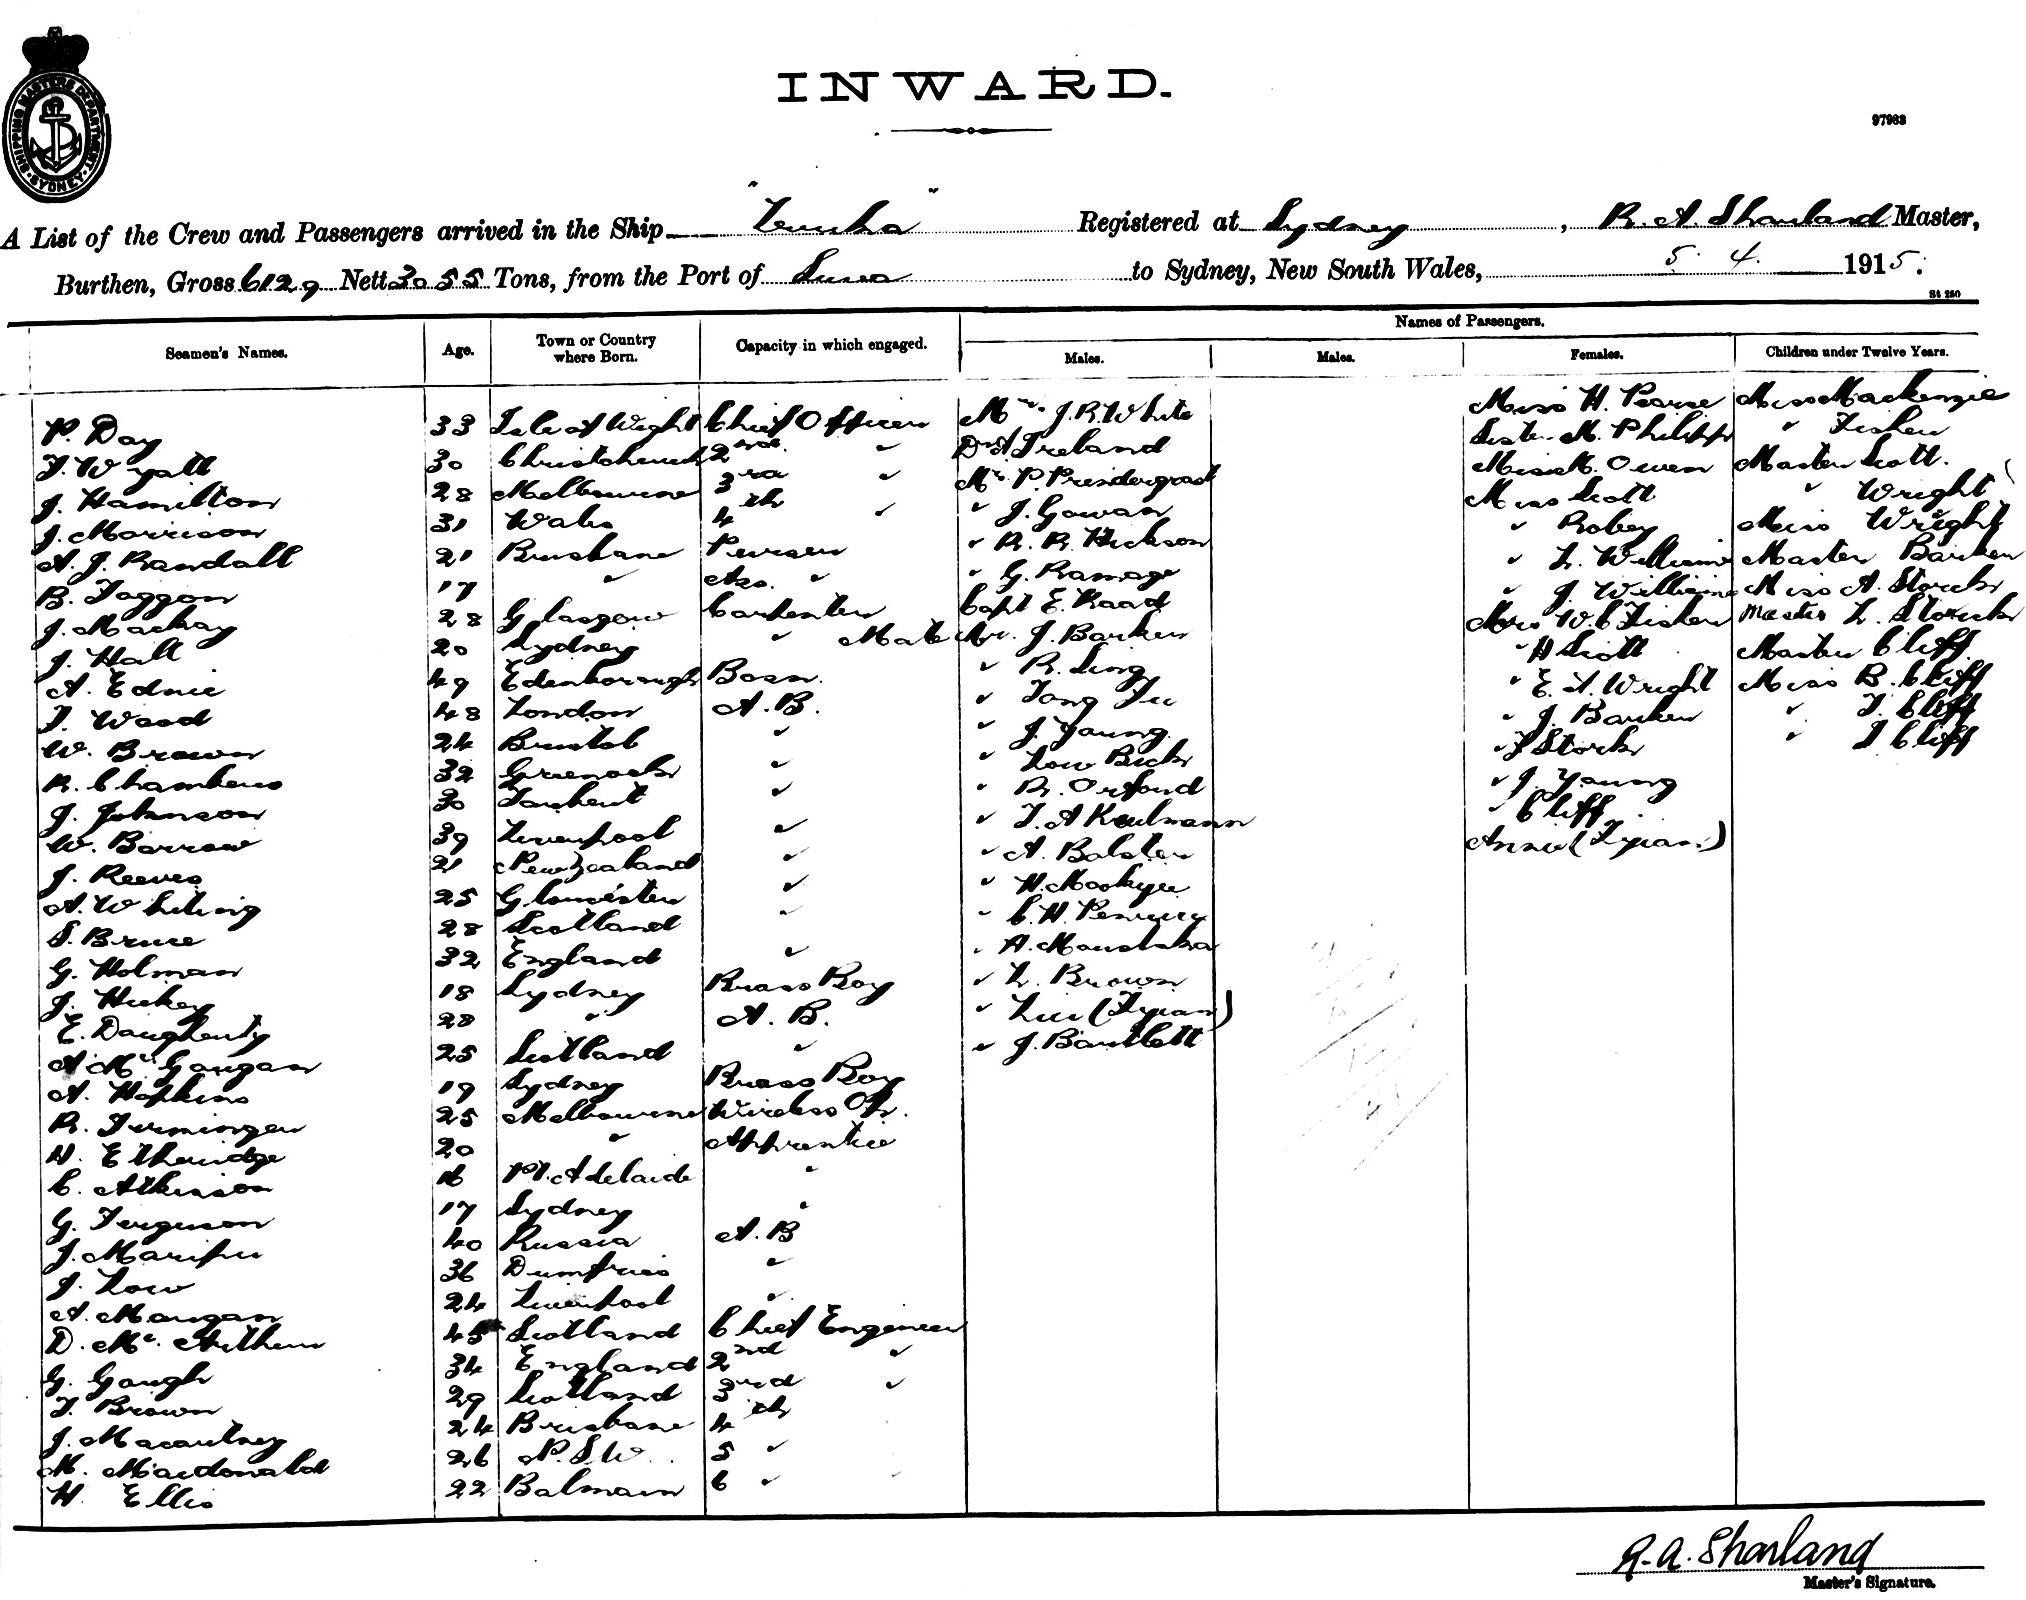 SHIPPING MASTERS DEPARTMENT SYDNEY
INWARD.
97983
A List of the Crew and Passengers arrived in the Ship "Levuka" Registered at Sydney, R. A. Sharland Master,
Burthen, Gross 6129 Nett 3055 Tons, from the Port of Suva to Sydney, New South Wales, 5. 4. 1915.
St 250
Seamen's Names. Age. Town or Country where Born. Capacity in which engaged. Names of Passengers.
Males. Males. Females. Children under Twelve Years.
P. Day 33 Isle of Wight Chief Officer Mr J. R. White Miss H. Pearse Miss Mackenzie
F. Wyatt 30 Christchurch 2nd " Dr A Ireland Sister M. Philipp " Fisher
J. Hamilton 28 Melbourne 3rd " Mr P. Prendergast Miss M. Owen Master Scott.
J. Morrison 31 Wales 4th " " J. Gowan Miss Scott " Wright
A. J. Randall 21 Brisbane Purser " R. R. Hickson " Robey Miss Wright
B. Taggon 17 " Ass. " " G. Ramage " L. Williams Master Barker
J. Mackay 28 Glasgow Carpenter Capt E. Raad " J. Williams Miss A. Storck
J. Hall 20 Sydney " Mate Mr. J. Barker Mrs W. C Fisher Master L. Storck
A. Ednie 49 Edenborough Bosn. " R. Sing " H Scott Master Cliff
F. Wood 48 London A.B. " Tong Fu " E. A. Wright Miss B. Cliff
W. Brown 24 Bristol " " J. Young " J. Barker " F. Cliff
R. Chambers 32 Greenock " " Low Buck " F Storck " I Cliff
J. Johnson 30 " " R. Orford " J. Young
W. Barrow 39 Liverpool " " F. A Kulmann " Cliff
J. Reeves 21 New Zealand " " A. Balster Annie (Fijian)
A. Whiting 25 Gloucester " " H.
S. Bruce 28 Scotland " " C. H.
G. Holman 32 England " " A.
J. Hickey 18 Sydney Brass Boy " L. Brown
E. Daugherty 28 " A. B. " (Fijian)
A Mc Gougan 25 Scotland " " J. Bartlett
A. Hopkins 19 Sydney Brass Boy
R. Ferminger 25 Melbourne Wireless Opr.
H. Etheridge 20 " Apprentice
C. Atkinson 16 Pt. Adelaide "
G. Ferguson 17 Sydney "
J. 40 Russia A.B
J. Low 36 Dumfries "
A. Mougan 24 Liverpool "
D. Mc. Arthur 45 Scotland Chief Engineer
G. Gough 34 England 2nd "
F. Brown 29 Scotland 3rd "
J. Macartney 24 Brisbane 4th
M. Macdonald 26 N.S.W. 5 "
H. Ellis 22 Balmain 6 "
R. A. Sharland
Master's Signature.